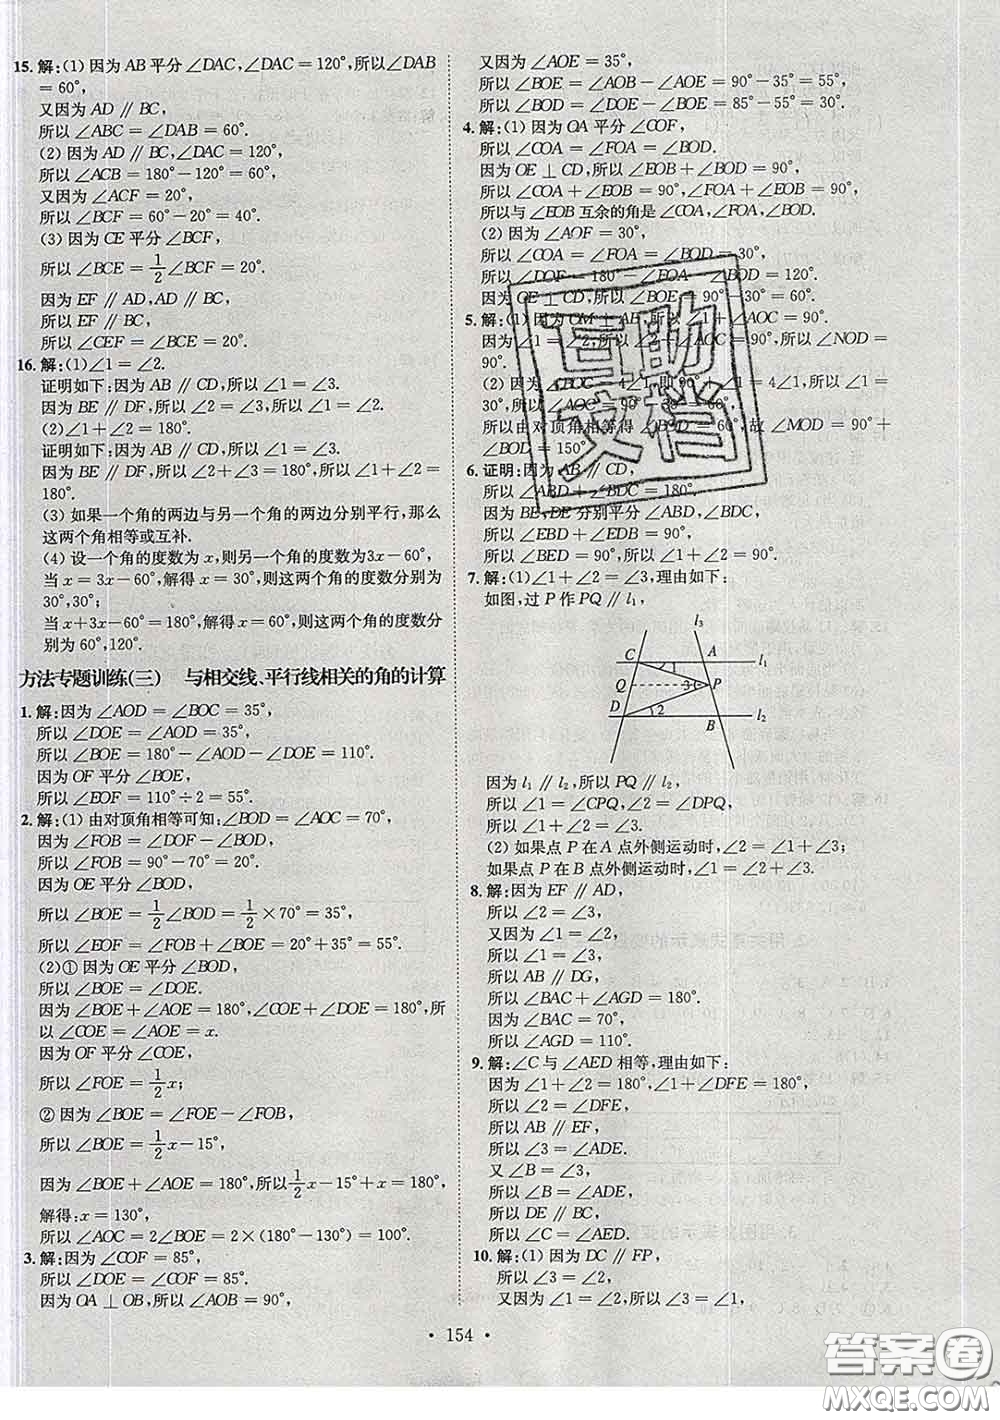 15. 解:(1) 因为 AB 平分 ∠DAC,∠DAC = 120°,所以∠DAB
= 60°,
又因为 AD ∥ BC,
所以 ∠ABC = ∠DAB = 60°.
(2) 因为 AD ∥ BC,∠DAC = 120°,
所以 ∠ACB = 180°-120° = 60°.
又因为 ∠ACF = 20°,
所以 ∠BCF = 60°-20° = 40°.
(3) 因为 CE 平分 ∠BCF,
所以 ∠BCE = 1/2 ∠BCF = 20°.
因为 EF ∥ AD,AD ∥ BC,
所以 EF ∥ BC.
所以 ∠CEF = ∠BCE = 20°.
16. 解:(1)∠1 = ∠2.
证明如下:因为 AB ∥ CD,所以 ∠1 = ∠3.
因为 BE ∥ DF,所以 ∠2 = ∠3,所以 ∠1 = ∠2.
(2)∠1+∠2 = 180°.
证明如下:因为 AB ∥ CD,所以 ∠1 = ∠3.
因为 BE ∥ DF,所以 ∠2+∠3 = 180°,所以 ∠1+∠2 =
180°.
(3) 如果一个角的两边与另一个角的两边分别平行,那么
这两个角相等或互补.
(4) 设一个角的度数为 x,则另一个角的度数为3x-60°,
当 x = 3x-60°,解得 x = 30°,则这两个角的度数分别为
30°,30°;
当 x+3x-60° = 180°,解得 x = 60°,则这两个角的度数分
别为 60°,120°.
方法专题训练(三) 与相交线、平行线相关的角的计算
1. 解:因为 ∠AOD = ∠BOC = 35°,
所以 ∠DOE = ∠AOD = 35°.
所以 ∠BOE = 180°-∠AOD-∠DOE = 110°.
因为 OF 平分 ∠BOE,
所以 ∠EOF = 110°÷2 = 55°.
2. 解:(1) 由对顶角相等可知:∠BOD = ∠AOC = 70°,
因为 ∠FOB = ∠DOF-∠BOD,
所以 ∠FOB = 90°-70° = 20°.
因为 OE 平分 ∠BOD,
所以 ∠BOE = 1/2 ∠BOD = 1/2 × 70° = 35°,
所以 ∠EOF = ∠FOB+∠BOE = 20°+35° = 55°.
(2)① 因为 OE 平分 ∠BOD,
所以 ∠BOE = ∠DOE.
因为 ∠BOE+∠AOE = 180°,∠COE+∠DOE = 180°,所
以 ∠COE = ∠AOE = x.
因为 OF 平分 ∠COE,
所以 ∠FOE = 1/2 x;
② 因为 ∠BOE = ∠FOE-∠FOB,
所以 ∠BOE = 1/2 x-15°,
因为 ∠BOE+∠AOE = 180°,所以 1/2 x-15°+x = 180°,
解得:x = 130°,
所以 ∠AOC = 2∠BOE = 2×(180°-130°) = 100°.
3. 解:因为 ∠COF = 85°,
所以 ∠DOE = ∠COF = 85°.
因为 OA ⊥ OB,所以 ∠AOB = 90°,
又因为 ∠AOE = 35°,
所以 ∠BOE = ∠AOB-∠AOE = 90°-35° = 55°.
所以 ∠BOD = ∠DOE-∠BOE = 85°-55° = 30°.
4. 解:(1) 因为 OA 平分 ∠COF,
所以 ∠COA = ∠FOA = ∠BOD.
因为 OE ⊥ CD,所以 ∠EOB+∠BOD = 90°.
所以 ∠COA+∠EOB = 90°,∠FOA+∠EOB = 90°.
所以与 ∠EOB 互余的角是 ∠COA,∠FOA,∠BOD.
(2) 因为 ∠AOF = 30°,
所以 ∠COA = ∠FOA = ∠BOD = 30°.
所以 ∠DOF = 180°-∠FOA-∠BOD = 120°.
因为 OE ⊥ CD,所以 ∠BOE = 90°-30° = 60°.
5. 解:(1) 因为 OM ⊥ AB,所以 ∠1+∠AOC = 90°.
因为 ∠1 = ∠2,所以 ∠2+∠AOC = 90°,所以 ∠NOD =
90°.
(2) 因为 ∠BOC = 4∠1,即 90°+∠1 = 4∠1,所以 ∠1 =
30°,所以 ∠AOC = 90°-30° = 60°,
所以由对顶角相等得 ∠BOD = 60°,故 ∠MOD = 90°+
∠BOD = 150°.
6. 证明:因为 AB ∥ CD,
所以 ∠ABD+∠BDC = 180°.
因为 BE,DE 分别平分 ∠ABD,∠BDC,
所以 ∠EBD+∠EDB = 90°.
所以 ∠BED = 90°.
7. 解:(1)∠1+∠2 = ∠3,理由如下:
如图,过 P 作 PQ ∥ l₁,
l₃
C 1 A l₁
Q 3 P
D 2 B l₂
因为 l₁ ∥ l₂,所以 PQ ∥ l₂,
所以 ∠1 = ∠CPQ,∠2 = ∠DPQ,
所以 ∠1+∠2 = ∠3.
(2) 如果点 P 在 A 点外侧运动时,∠2 = ∠1+∠3;
如果点 P 在 B 点外侧运动时,∠1 = ∠2+∠3.
8. 解:因为 EF ∥ AD,
所以 ∠2 = ∠3,
又因为 ∠1 = ∠2,
所以 ∠1 = ∠3,
所以 AB ∥ DG,
所以 ∠BAC+∠AGD = 180°.
因为 ∠BAC = 70°,
所以 ∠AGD = 110°.
9. 解:∠C 与 ∠AED 相等,理由如下:
因为 ∠1+∠2 = 180°,∠1+∠DFE = 180°,
所以 ∠2 = ∠DFE,
所以 AB ∥ EF,
所以 ∠3 = ∠ADE.
又 ∠B = ∠3,
所以 ∠B = ∠ADE,
所以 DE ∥ BC,
所以 ∠C = ∠AED.
10. 解:(1) 因为 DC ∥ FP,
所以 ∠3 = ∠2,
又因为∠1 = ∠2,所以 ∠3 = ∠1,
• 154 •
互助
文档
答案圈
MXQE.COM